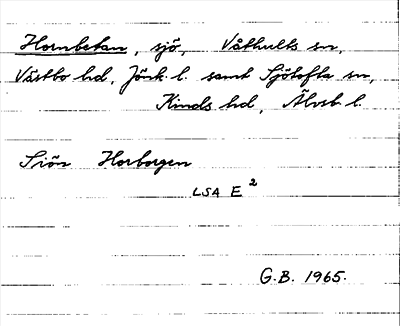 Hornbetan, sjö, Våthults sn,
Västbo hd, Jönk. l. samt Sjötofta sn,
Kinds hd, Älvsb. l.
Siön Horborgen
LSA E²
G.B. 1965.